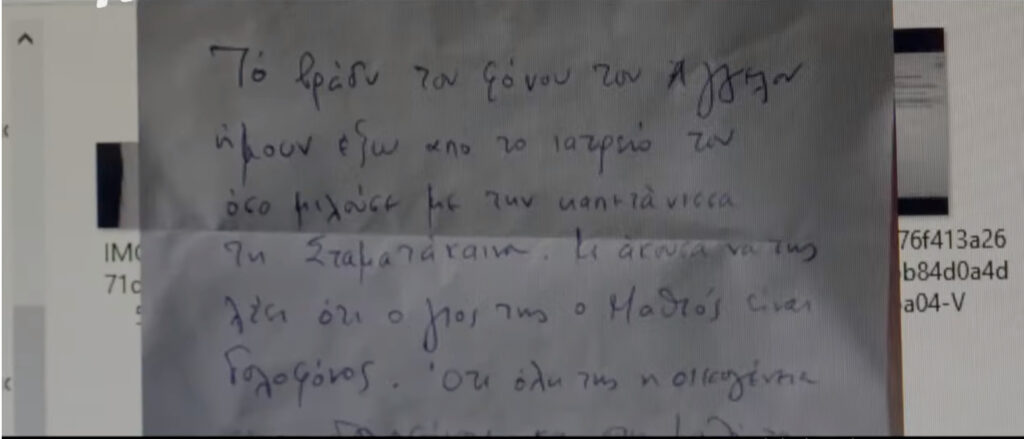 Τό βράδυ του φόνου του Άγγελου
ήμουν έξω απο το ιατρείο του
όσο μιλούσε με την καπετάνισσα
τη Σταματάκαινα. Κι άκουσα να της
λέει ότι ο γιός της ο Μαθιός είναι
δολοφόνος. Ότι όλη της η οικογένεια
IMG
71c
76f413a26
b84d0a4d
a04-V